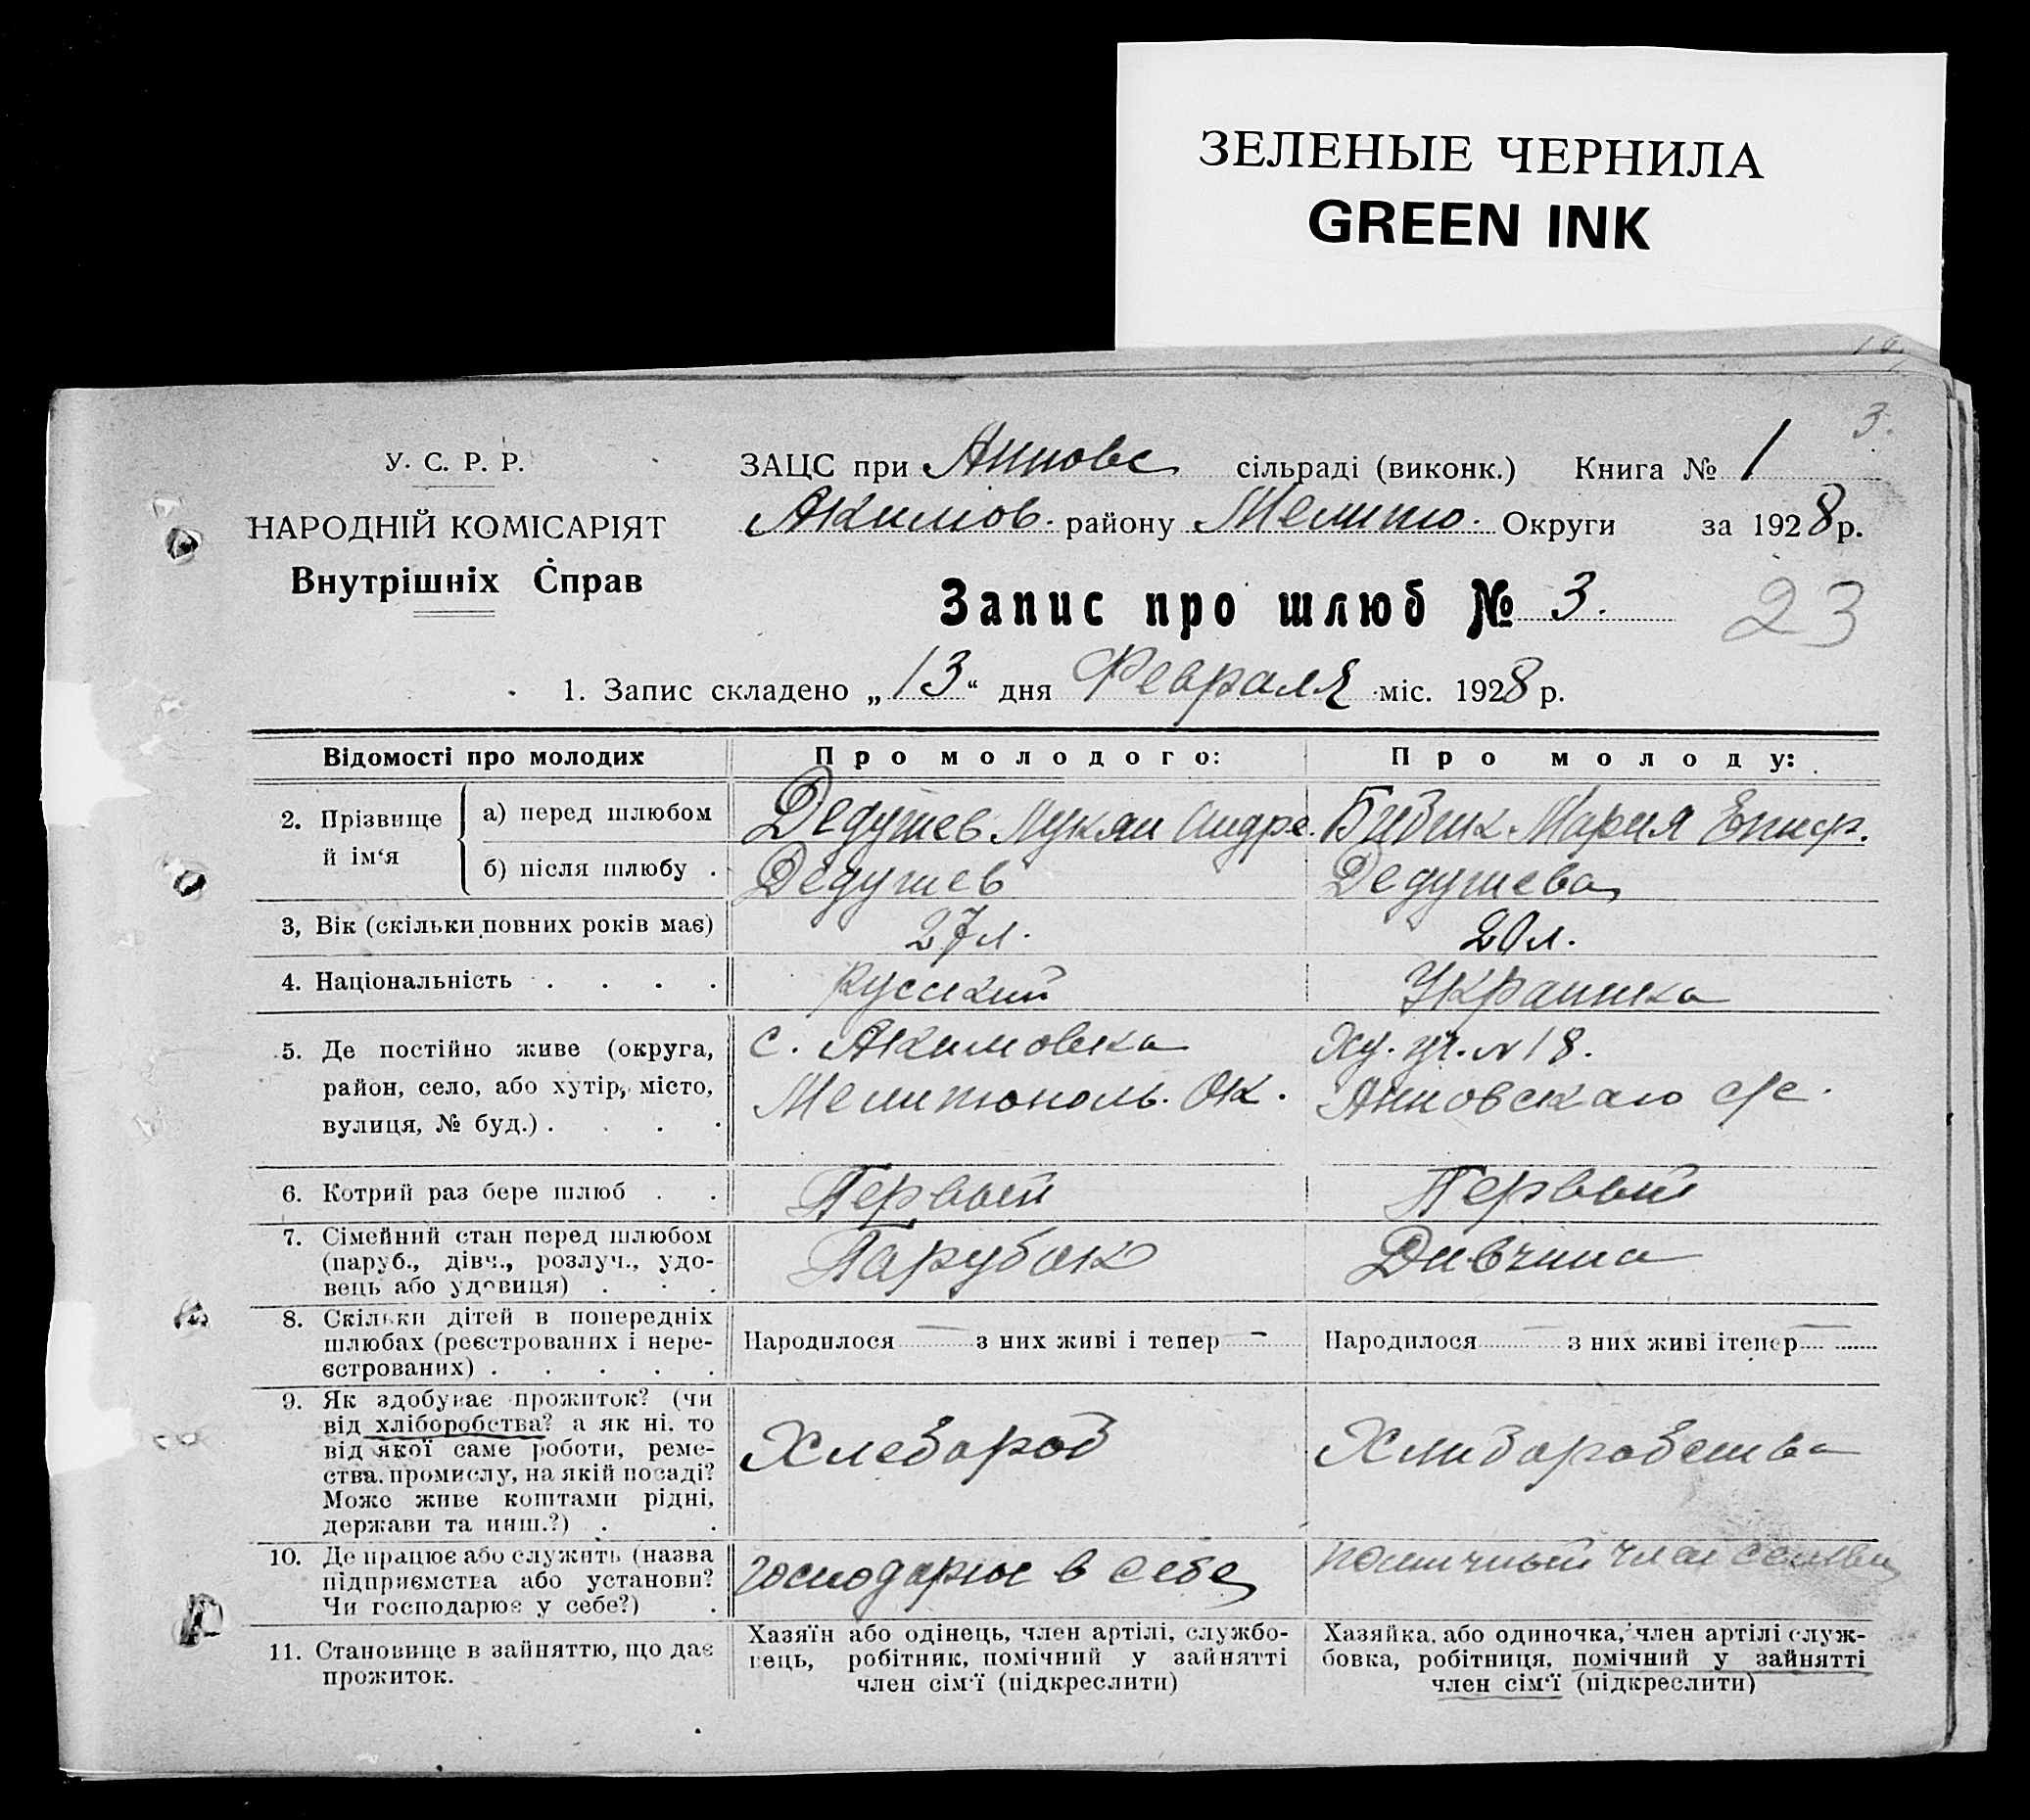 ЗЕЛЕНЫЕ ЧЕРНИЛА
GREEN INK
3.
У. С. Р. Р.
НАРОДНІЙ КОМІСАРІЯТ
Внутрішніх Справ
ЗАЦС при Анновс сільраді (виконк.) Книга № 1
Акимов. району Мелито. Округи за 1928 р.
Запис про шлюб № 3.
23
1. Запис складено „13“ дня Февраля міс. 1928 р.
Відомості про молодих
Про молодого:
Про молоду:
2. Прізвище й ім‘я
а) перед шлюбом
Дедушев Лукян Андре.
Бибик Мария Епиф.
б) після шлюбу .
Дедушев
Дедушева
3, Вік (скільки повних років має)
27 л.
20 л.
4. Національність . . . .
Русский
Украинка
5. Де постійно живе (округа,
район, село, або хутір, місто,
вулиця, № буд.) . . . .
с. Акимовка
Мелитополь. Ок.
Ху. уч. № 18.
Анновскаго с/с.
6. Котрий раз бере шлюб . .
Первый
Первый
7. Сімейний стан перед шлюбом
(паруб., дівч., розлуч., удо-
вець або удовиця) . . .
Парубок
Дивчина
8. Скільки дітей в попередніх
шлюбах (реєстрованих і нере-
єстрованих) . . . . .
Народилося — з них живі і тепер —
Народилося — з них живі ітепер —
9. Як здобуває прожиток? (чи
від хліборобства? а як ні, то
від якої саме роботи, реме-
ства, промислу, на якій посаді?
Може живе коштами рідні,
держави та инш.?) . .
Хлебороб
Хлиборобства
10. Де працює або служить (назва
підприємства або установи?
Чи господарює у себе?) .
господарює в себе
помичный член семьи
11. Становище в зайняттю, що дає
прожиток.
Хазяїн або одінець, член артілі, службо-
вець, робітник, помічний у зайнятті
член сім‘ї (підкреслити)
Хазяйка, або одиночка, член артілі служ-
бовка, робітниця, помічний у зайнятті
член сім‘ї (підкреслити)